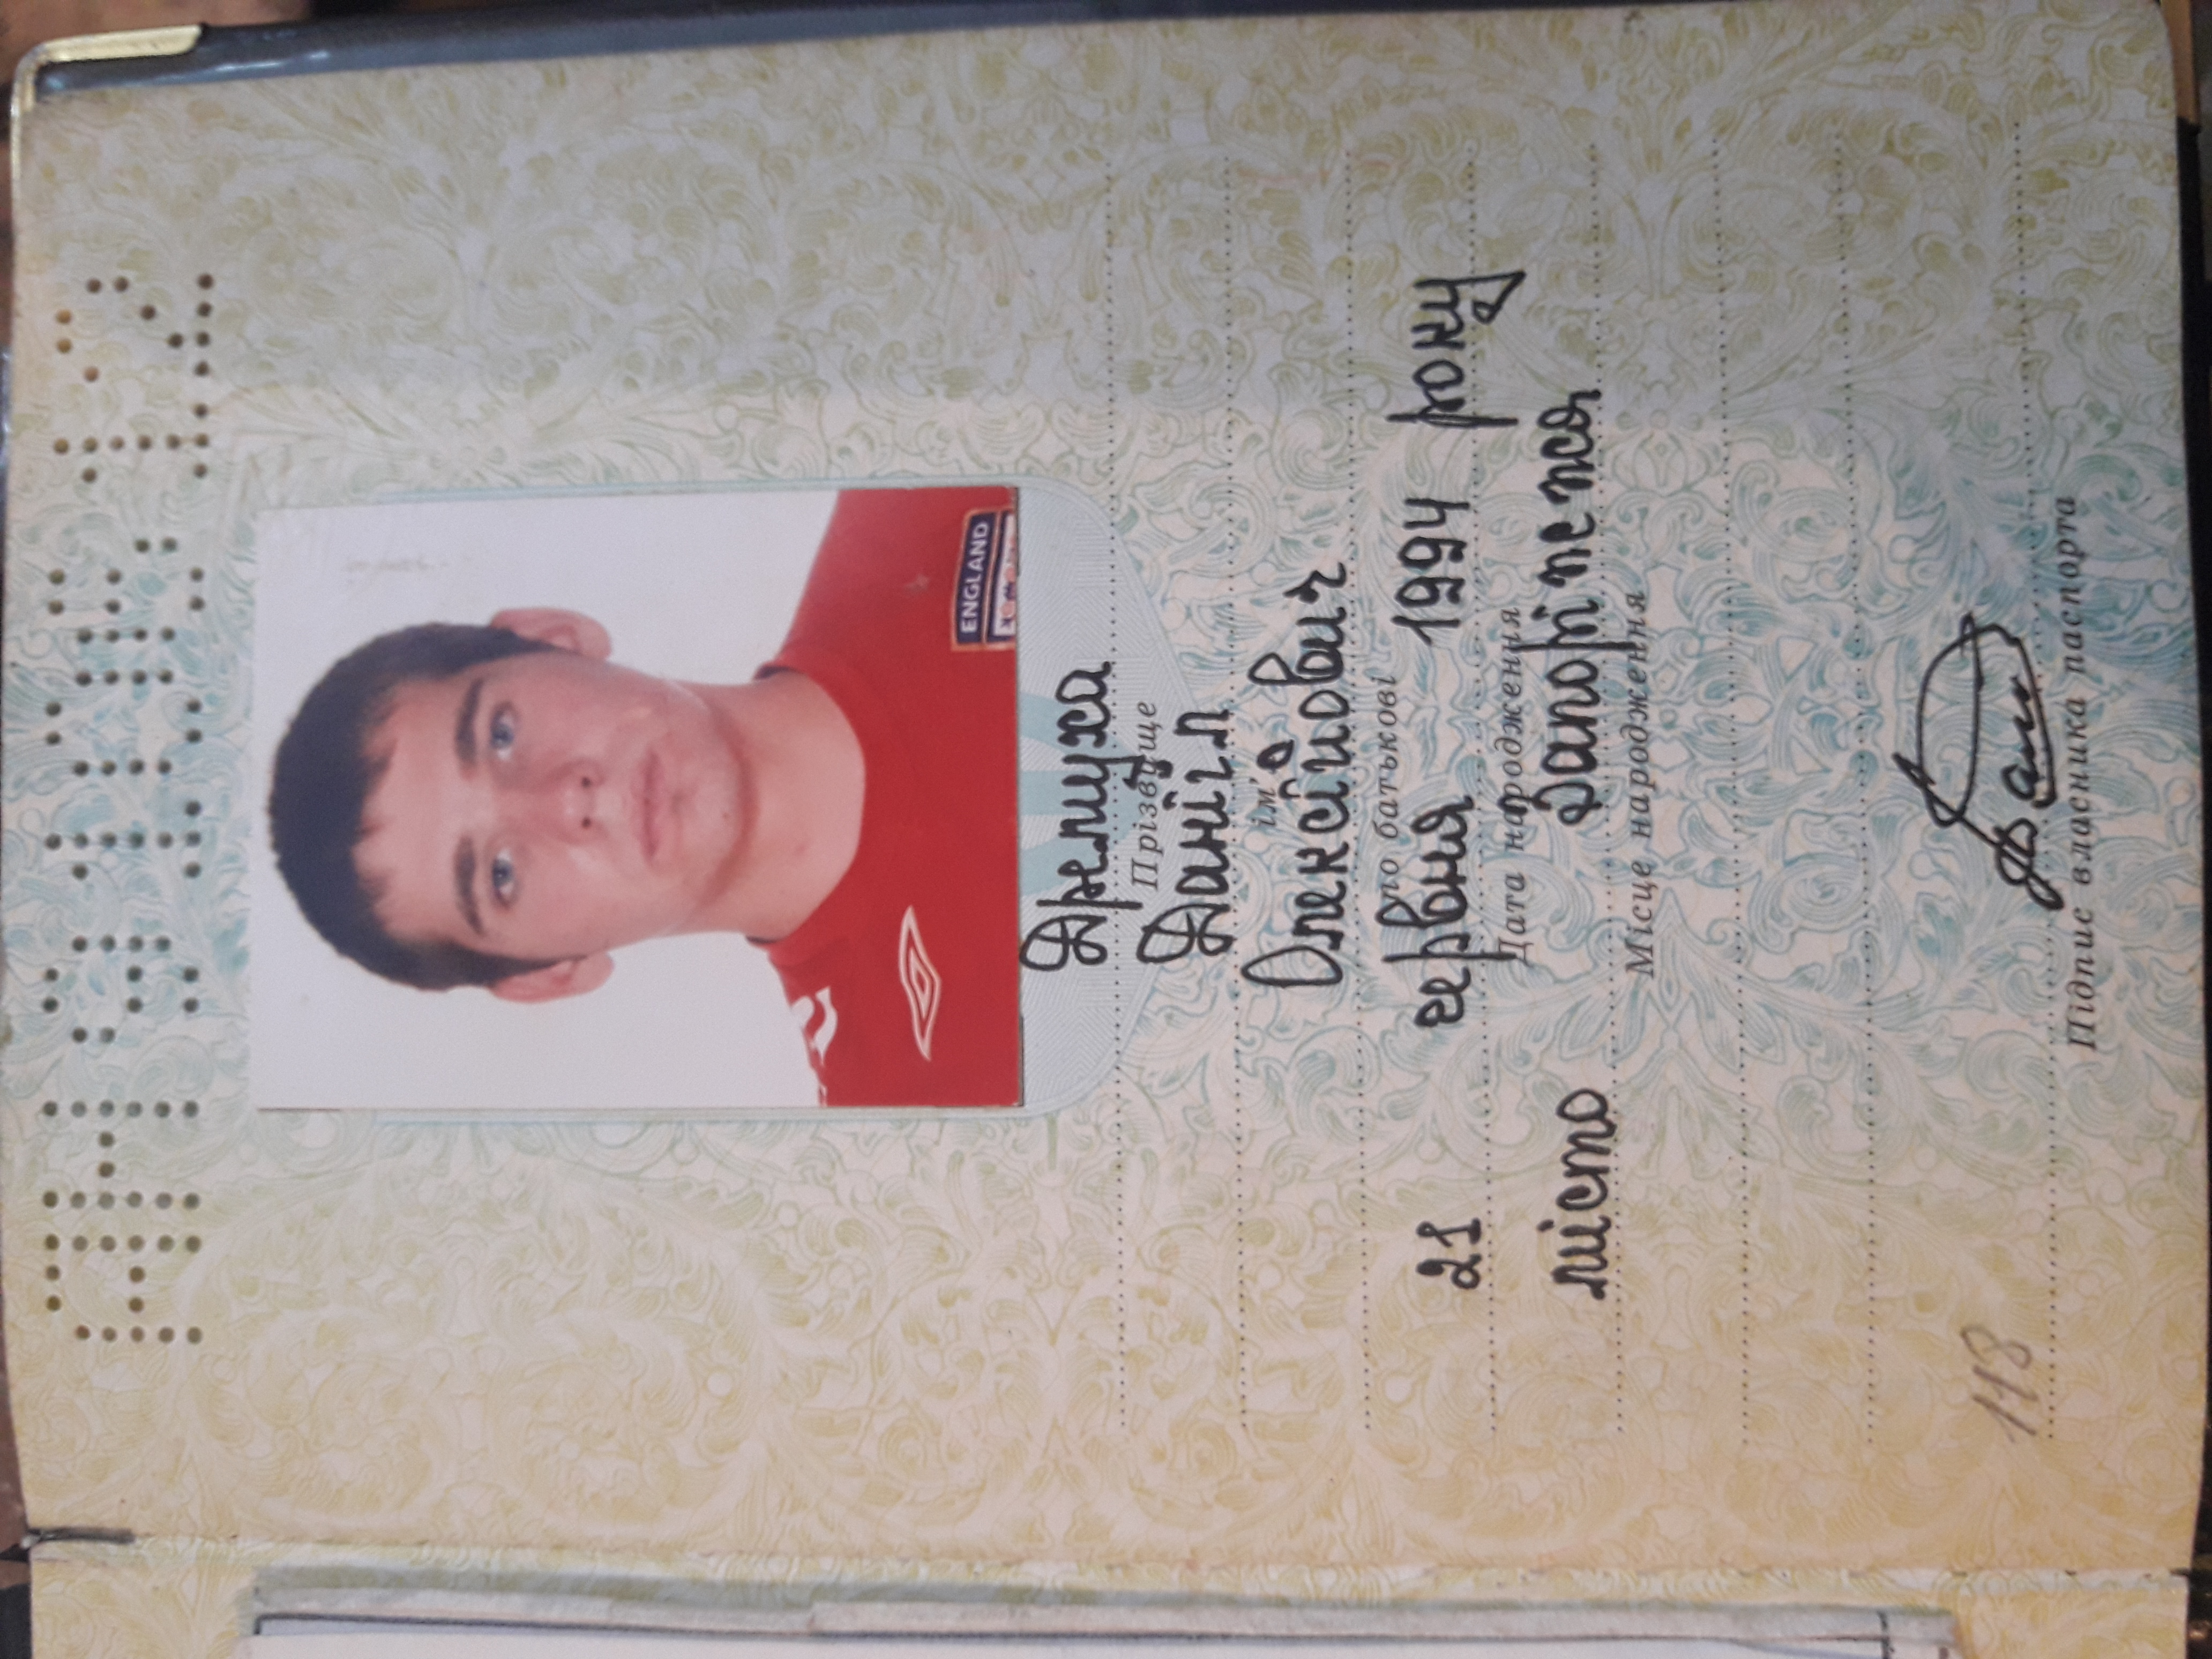 ENGLAND
Дремуха
Прізвище
Даніїл
ім'я
Олексійович
по батькові
21 червня 1994 року
Дата народження
місто Запоріжжя
Місце народження
118
Підпис власника паспорта